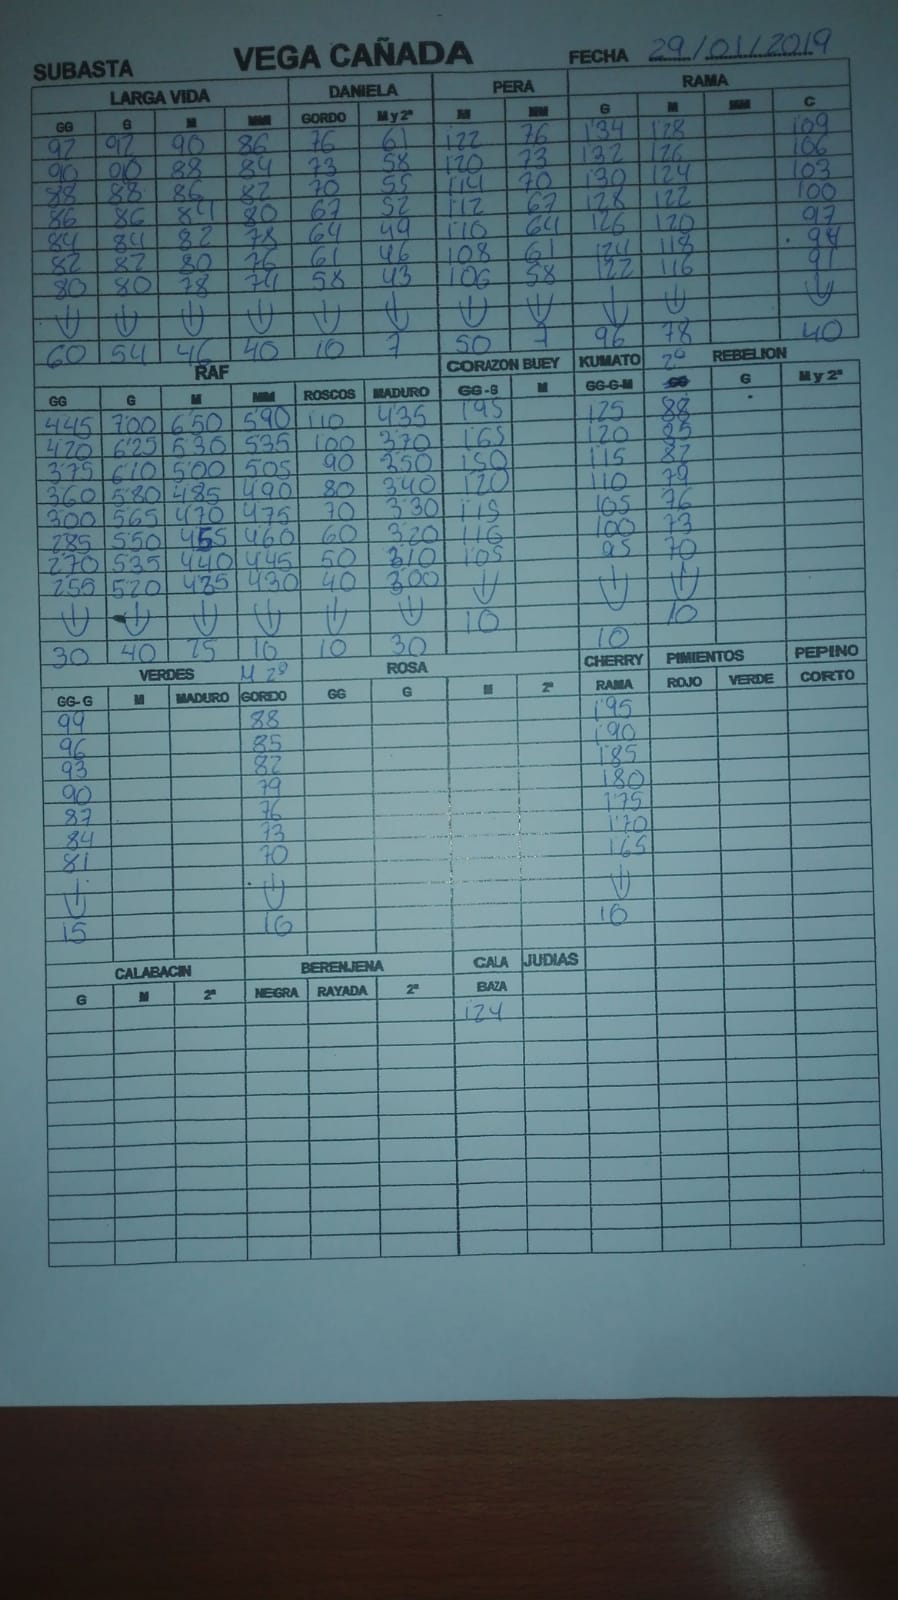 SUBASTA VEGA CAÑADA FECHA 29/01/2019
LARGA VIDA DANIELA PERA RAMA
GG G M MM GORDO M y 2ª M MM G M MM C
92 92 90 86 76 61 1'22 76 1'34 1'28 1'09
90 90 88 84 73 58 1'20 73 1'32 1'26 1'06
88 88 86 82 70 55 1'14 70 1'30 1'24 1'03
86 86 84 80 67 52 1'12 67 1'28 1'22 1'00
84 84 82 78 64 49 1'10 64 1'26 1'20 97
82 82 80 76 61 46 1'08 61 1'24 1'18 94
80 80 78 74 58 43 1'06 58 1'22 1'16 91
60 54 46 40 10 7 50 7 96 78 40
RAF CORAZON BUEY KUMATO 2º REBELION
GG G M MM ROSCOS MADURO GG-G M GG-G-M G M y 2ª
4'45 7'00 6'50 5'90 1'10 4'35 1'95 1'25 88
4'20 6'25 5'30 5'35 1'00 3'70 1'65 1'20 85
3'75 6'10 5'00 5'05 90 3'50 1'50 1'15 82
3'60 5'80 4'85 4'90 80 3'40 1'20 1'10 79
3'00 5'65 4'70 4'75 70 3'30 1'15 1'05 76
2'85 5'50 4'55 4'60 60 3'20 1'00 73
2'70 5'35 4'40 4'45 50 3'10 1'05 95 70
2'55 5'20 4'30 40 3'00
10 10
30 40 25 10 30 10
VERDES M 2º ROSA CHERRY PIMIENTOS PEPINO
GG-G M MADURO GORDO GG G M 2ª RAMA ROJO VERDE CORTO
99 88 1'95
96 85 1'90
93 82 1'85
90 79 1'80
87 76 1'75
84 73 1'70
81 70 1'65
15 16 10
CALABACIN BERENJENA CALA JUDIAS
G M 2ª NEGRA RAYADA 2ª BAZA
1'24